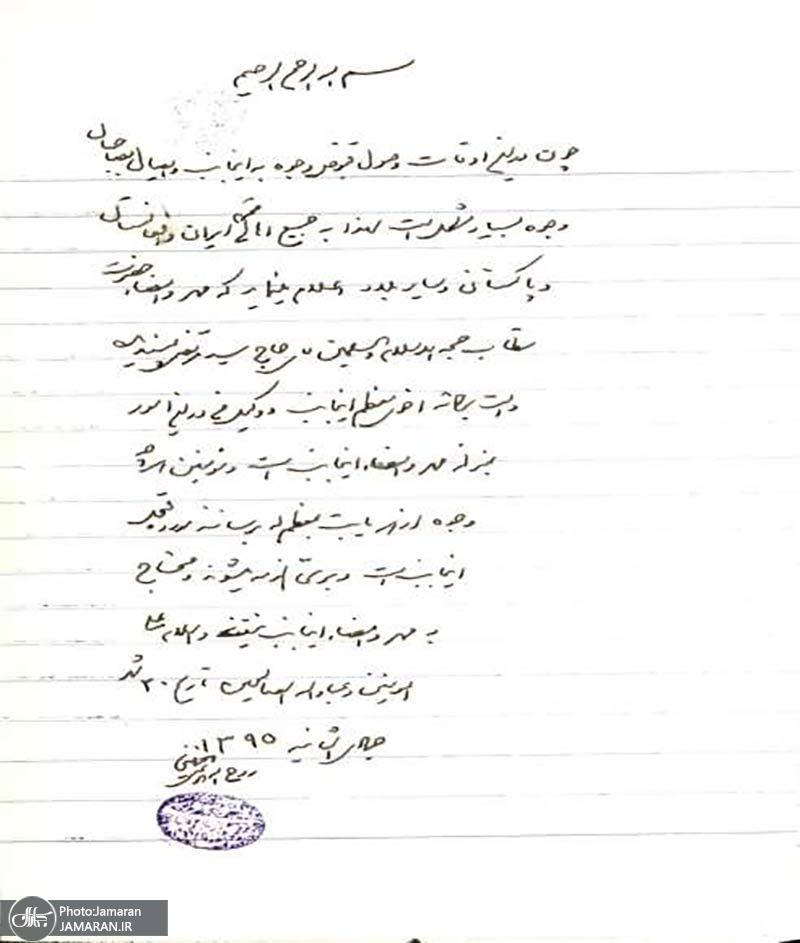 بسم الله الرحمن الرحیم
چون در بعضی اوقات وصول قبوض وجوه به اینجانب و ایصال به صاحبان
وجوه بسیار مشکل است لهذا به جمیع اهالی ایران و افغانستان
و پاکستان و سایر بلاد اعلام مینماید که مهر و امضاء حضرت
مستطاب حجة الاسلام والمسلمین آقای حاج سید مرتضی پسندیده
دامت برکاته اخوی معظم اینجانب و وکیل در امور
بمنزله مهر و امضاء اینجانب است و مؤمنین
وجوه از هر بابت بمعظم له برسانند مورد قبول
اینجانب است و بری الذمه میشوند و محتاج
به مهر و امضاء اینجانب نیستند والسلام علی
المؤمنین و عباد الله الصالحین تاریخ ۲۰ شهر
جمادی الثانیه ۱۳۹۵
روح الله الموسوی الخمینی
Photo:Jamaran
JAMARAN.IR